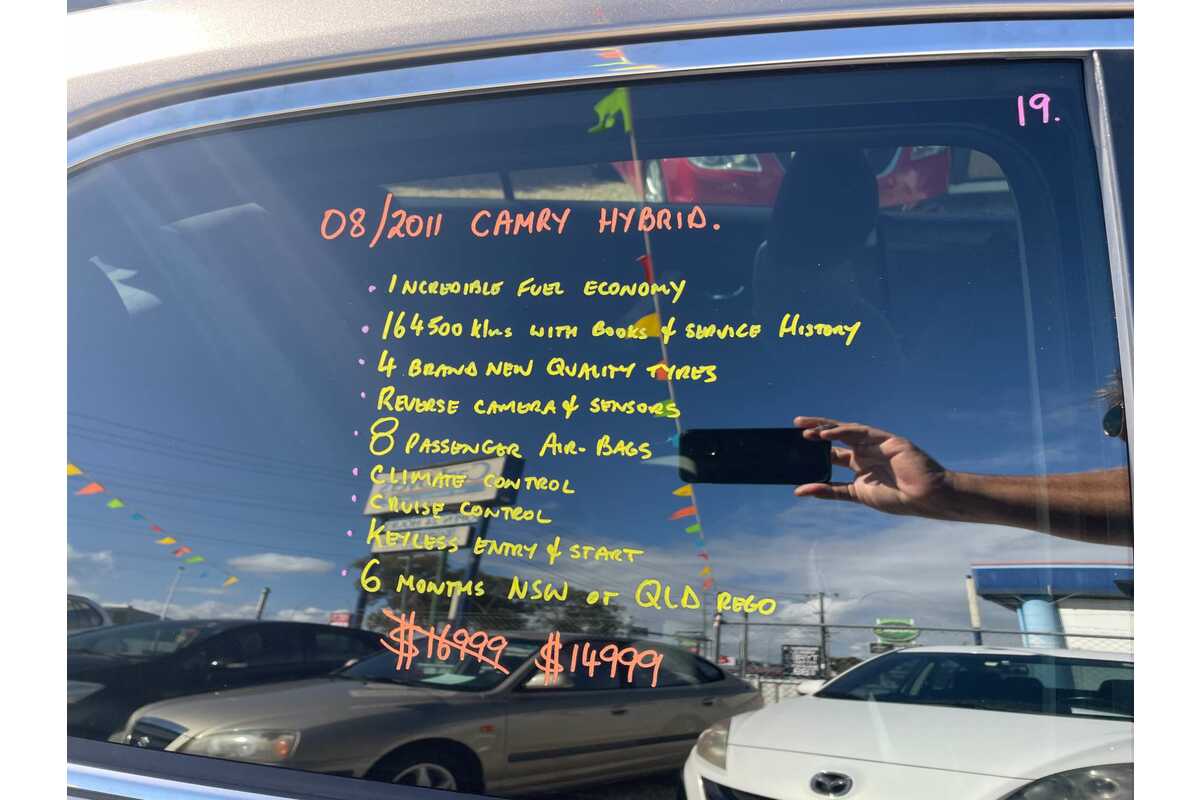 19.
08/2011 CAMRY HYBRID.
• INCREDIBLE FUEL ECONOMY
• 164500 klms WITH BOOKS & SERVICE HISTORY
• 4 BRAND NEW QUALITY TYRES
• REVERSE CAMERA & SENSORS
• 8 PASSENGER AIR-BAGS
• CLIMATE CONTROL
• CRUISE CONTROL
• KEYLESS ENTRY & START
• 6 MONTHS NSW OR QLD REGO
$16999 $14999